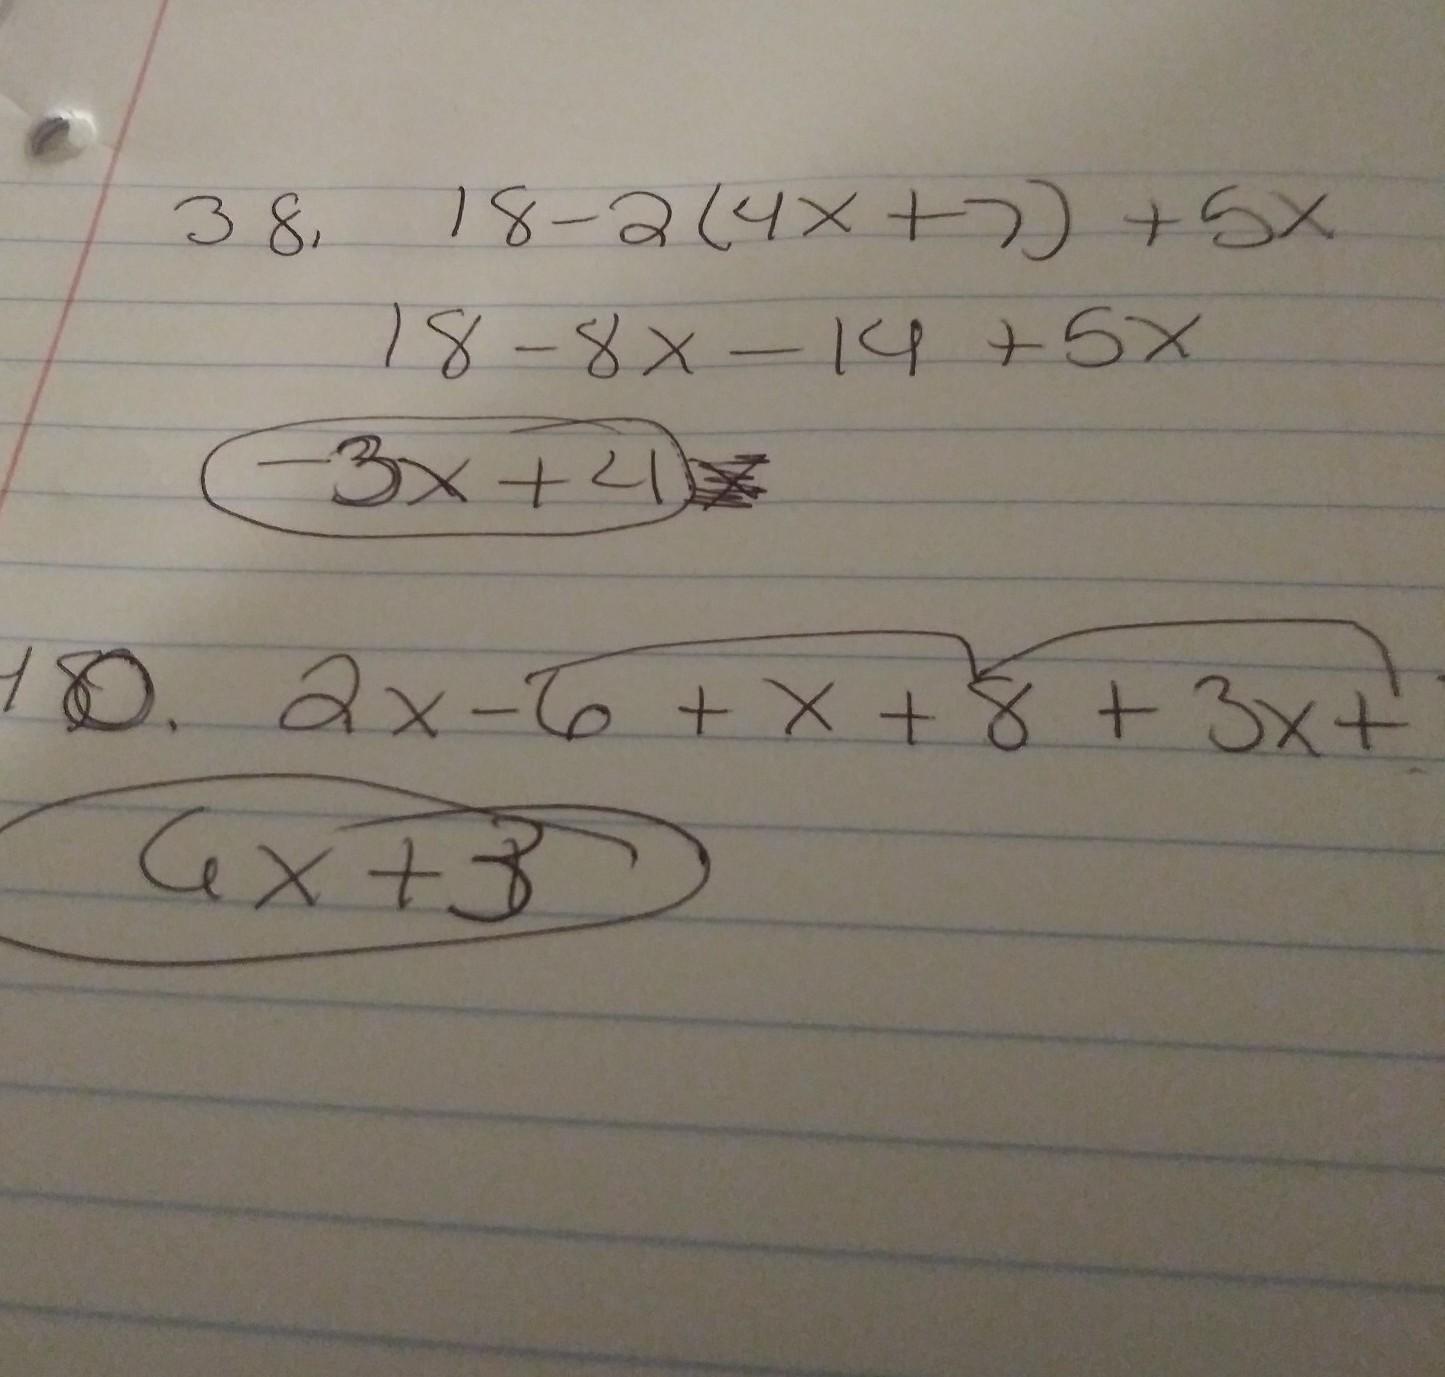 38. 18-2(4x+7) +5x
18-8x-14 +5x
-3x+4
40. 2x-6+x+8+3x+
6x+3